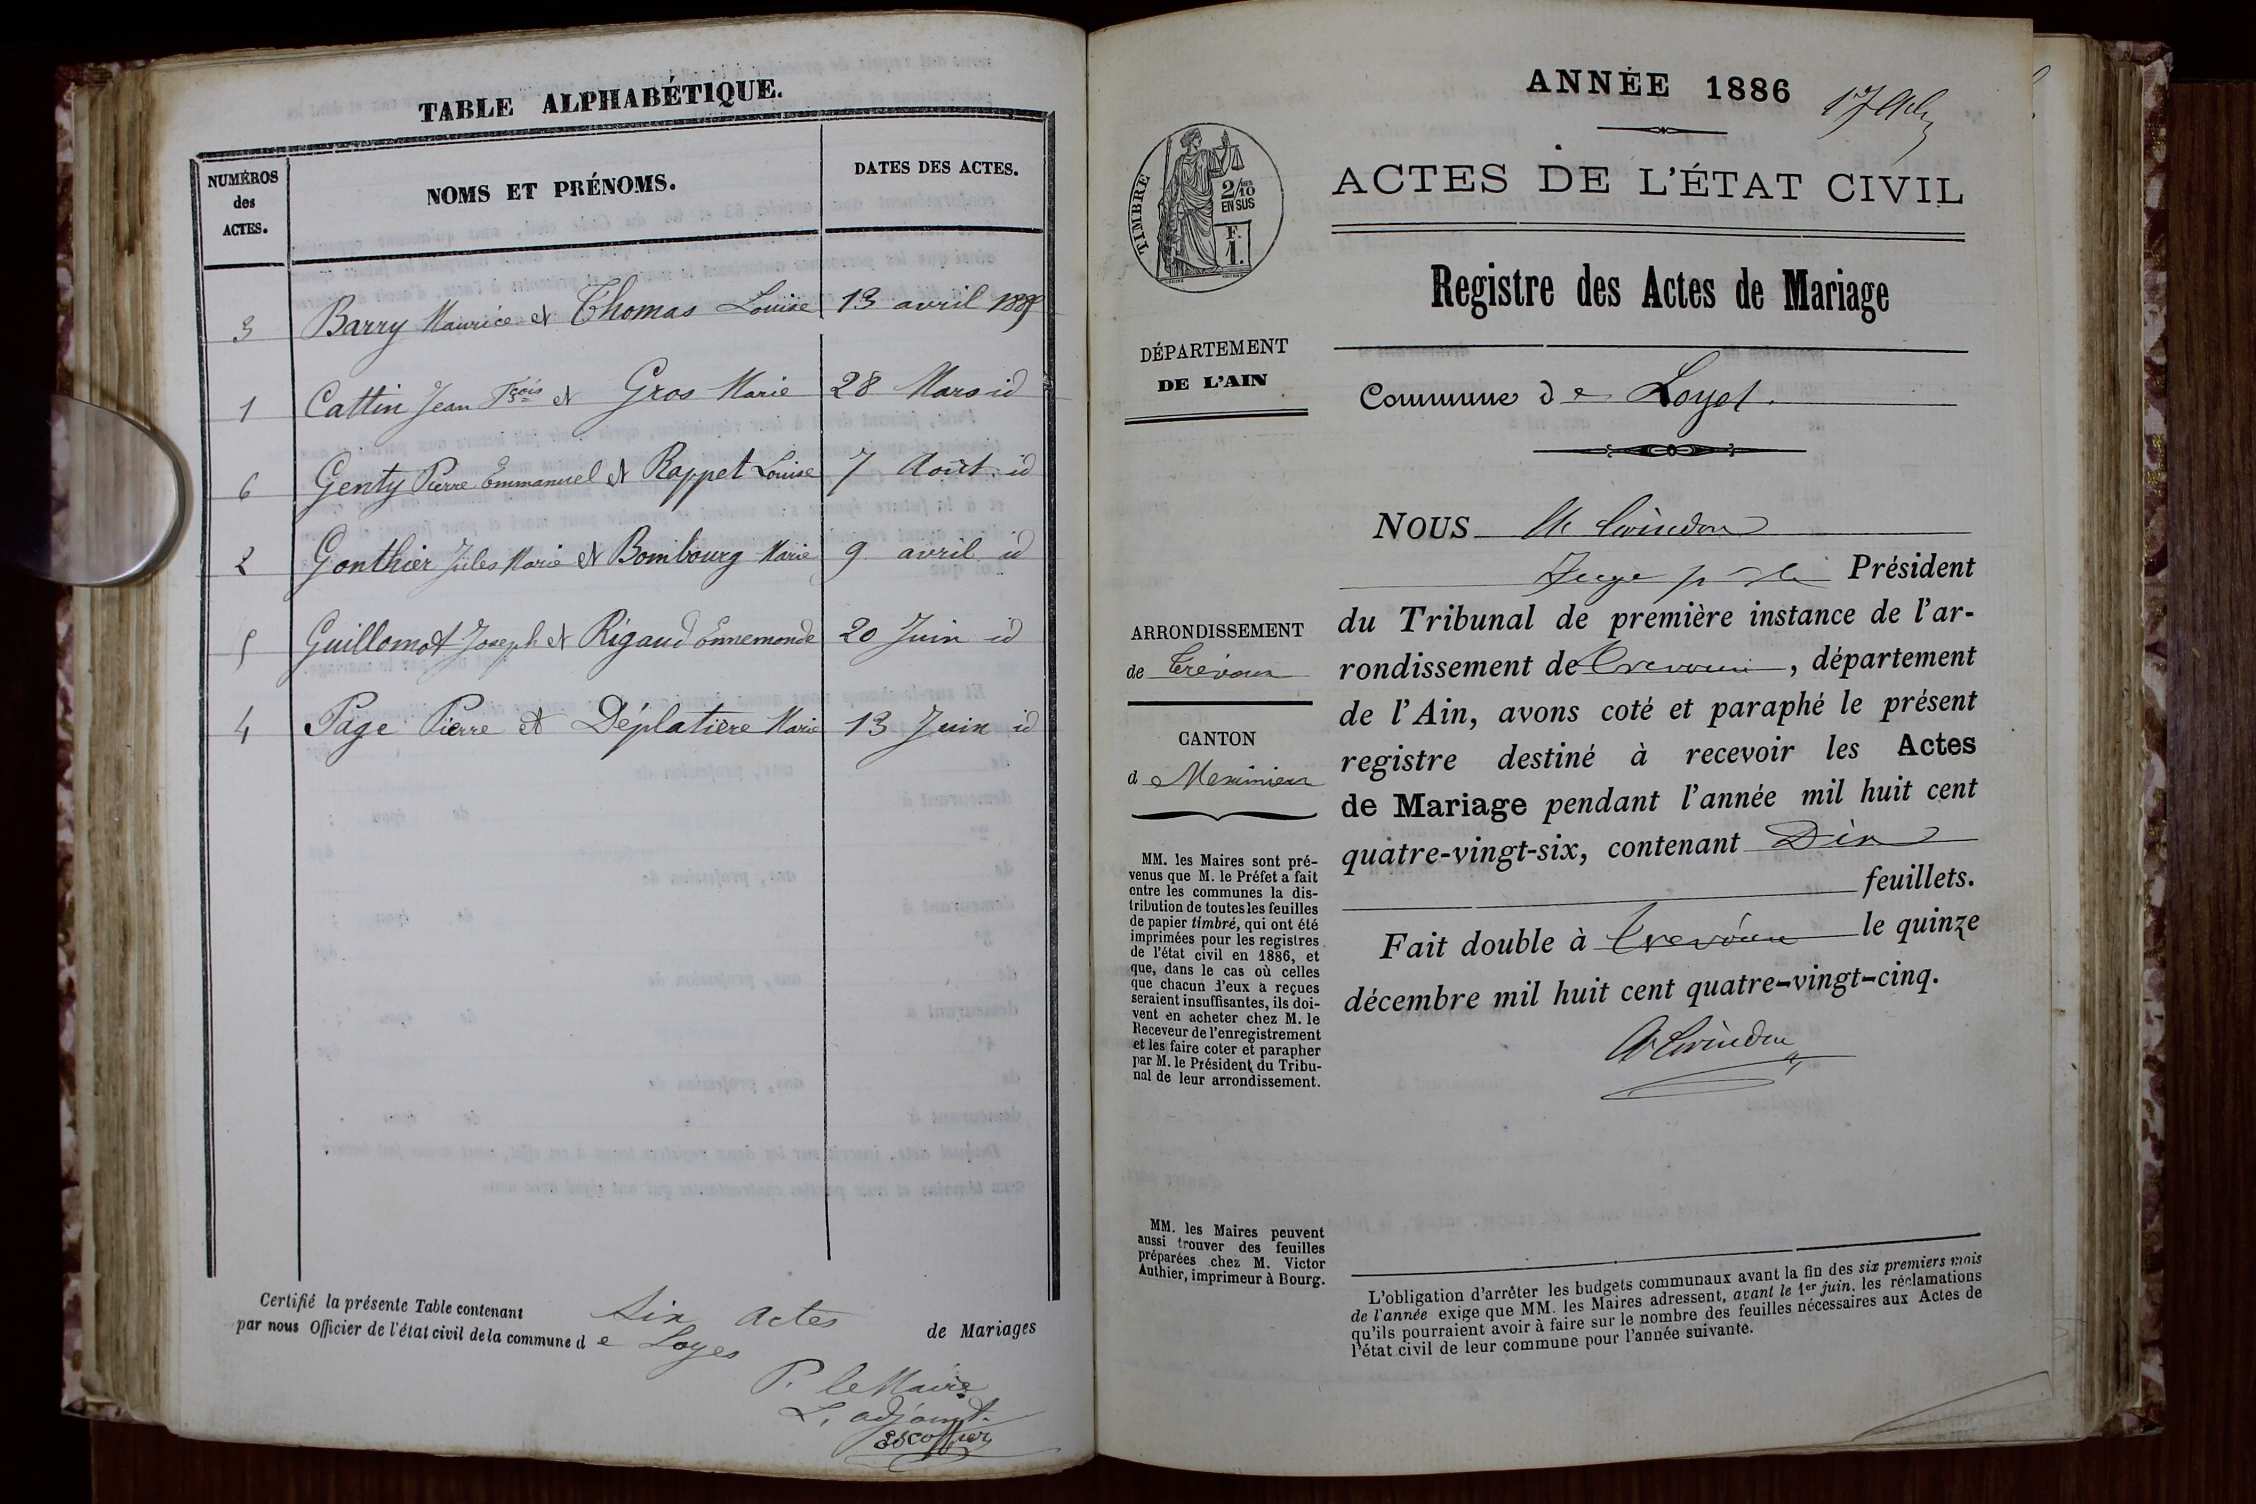 TABLE ALPHABÉTIQUE.
NUMÉROS
des
ACTES.
NOMS ET PRÉNOMS.
DATES DES ACTES.
3 Barry Maurice et Thomas Louise 13 avril
1 Cattin Jean Fçois et Gros Marie 28 Mars id
6 Genty Pierre Emmanuel et Rappet Louise 7 Août id
2 Gonthier Jules Marie et Bombourg Marie 9 avril id
5 Guillomot Joseph et Rigaud Ennemonde 20 Juin id
4 Page Pierre et Déplatière Marie 13 Juin id
Certifié la présente Table contenant Six Actes de Mariages
par nous Officier de l'état civil de la commune de Loyes
P. le Maire
L'adjoint
Escoffier
ANNÉE 1886
TIMBRE
2/10 EN SUS
F.
1.
ACTES DE L'ÉTAT CIVIL
Registre des Actes de Mariage
DÉPARTEMENT
DE L'AIN
Commune de Loyes.
NOUS
Juge Président
du Tribunal de première instance de l'ar-
rondissement de Trevoux, département
de l'Ain, avons coté et paraphé le présent
registre destiné à recevoir les Actes
de Mariage pendant l'année mil huit cent
quatre-vingt-six, contenant Dix
feuillets.
Fait double à Trevoux le quinze
décembre mil huit cent quatre-vingt-cinq.
ARRONDISSEMENT
de Trévoux
CANTON
de Meximieux
MM. les Maires sont pré-
venus que M. le Préfet a fait
entre les communes la dis-
tribution de toutes les feuilles
de papier timbré, qui ont été
imprimées pour les registres
de l'état civil en 1886, et
que, dans le cas où celles
que chacun d'eux a reçues
seraient insuffisantes, ils doi-
vent en acheter chez M. le
Receveur de l'enregistrement
et les faire coter et parapher
par M. le Président du Tribu-
nal de leur arrondissement.
MM. les Maires peuvent
aussi trouver des feuilles
préparées chez M. Victor
Authier, imprimeur à Bourg.
L'obligation d'arrêter les budgets communaux avant la fin des six premiers mois
de l'année exige que MM. les Maires adressent, avant le 1er juin, les réclamations
qu'ils pourraient avoir à faire sur le nombre des feuilles nécessaires aux Actes de
l'état civil de leur commune pour l'année suivante.